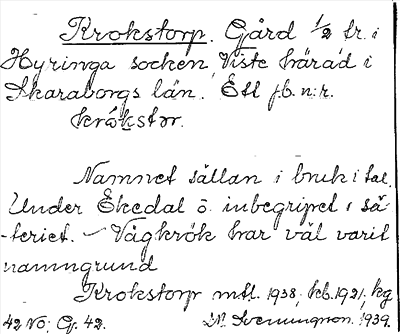 Krokstorp. Gård 1/2 fr. i
Hyringa socken Viste härad i
Skaraborgs län. Ett f.b. n:r.
krokstor.
Namnet sällan i bruk i tal.
Under Ekedal ö. inbegripet i sä-
-teriet. - Vägkrök har väl varit
namngrund
Krokstorp mtl. 1938, kb. 1921. kg
42 NO; Gj. 42. 1939.